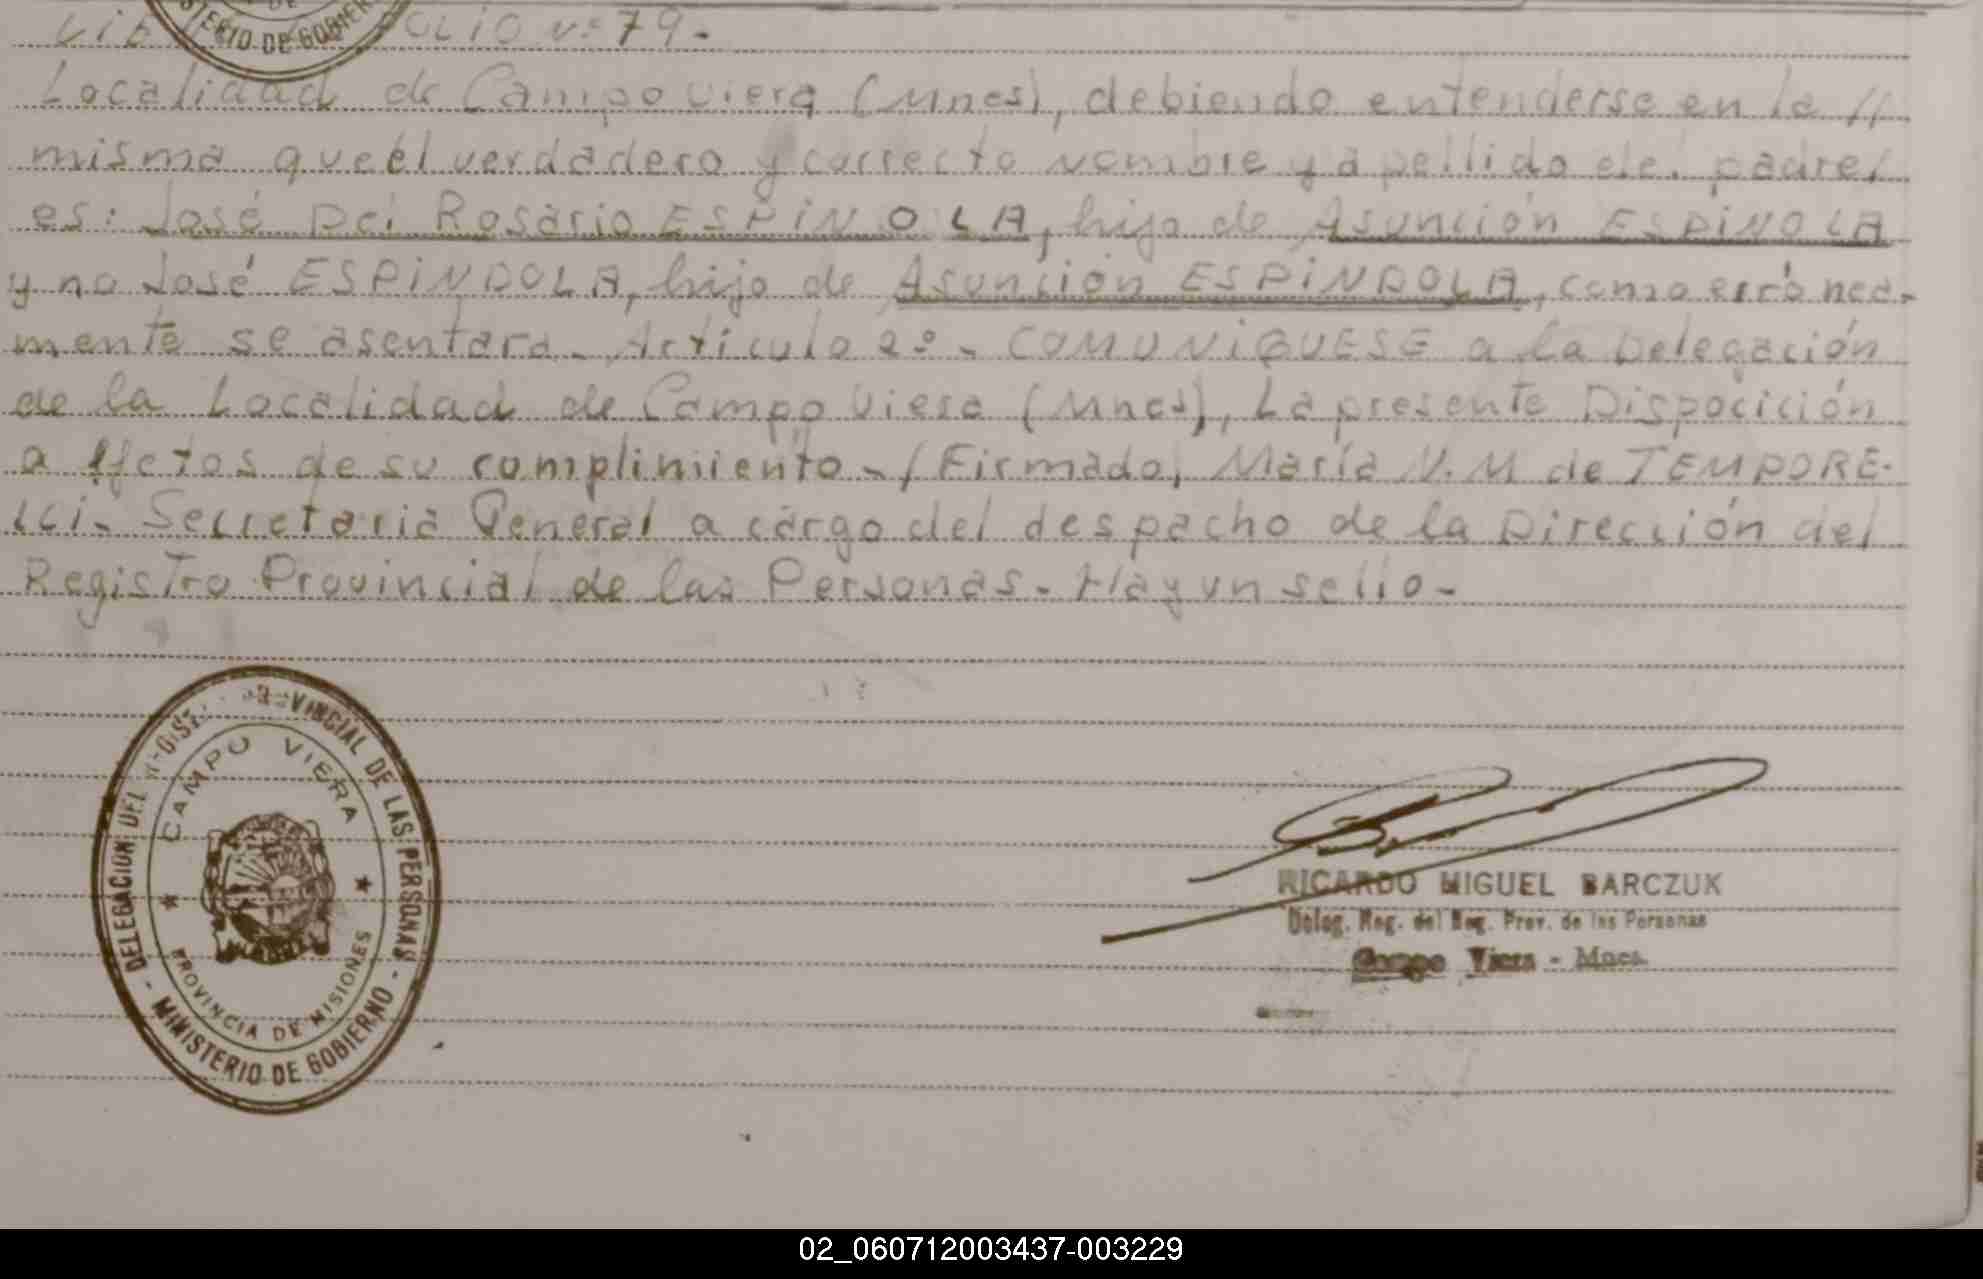 LIB OLIO Nº 79.
STERIO DE GOBIER
Localidad de Campo Viera (Mnes), debiendo entenderse en la //
misma que el verdadero y correcto nombre y apellido del padre/
es: José Del Rosário ESPINOLA, hijo de Asunción ESPINOLA
y no José ESPINDOLA, hijo de Asunción ESPINDOLA, como erró nea-
mente se asentara. Artículo 2º. COMUNIQUESE a la Delegación
de la Localidad de Campo Viera (Mnes), La presente Disposición
a efetos de su cumplimiento. / Firmado, María N.M de TEMPORE-
LLI. Secretaria General a cargo del despacho de la Dirección del
Registro Provincial de las Personas. Hay un sello.
DELEGACION DEL REGIST PROVINCIAL DE LAS PERSONAS
CAMPO VIERA
PROVINCIA DE MISIONES
- MINISTERIO DE GOBIERNO -
RICARDO MIGUEL BARCZUK
Deleg. Reg. del Reg. Prov. de las Personas
Campo Viera - Mnes.
02_060712003437-003229